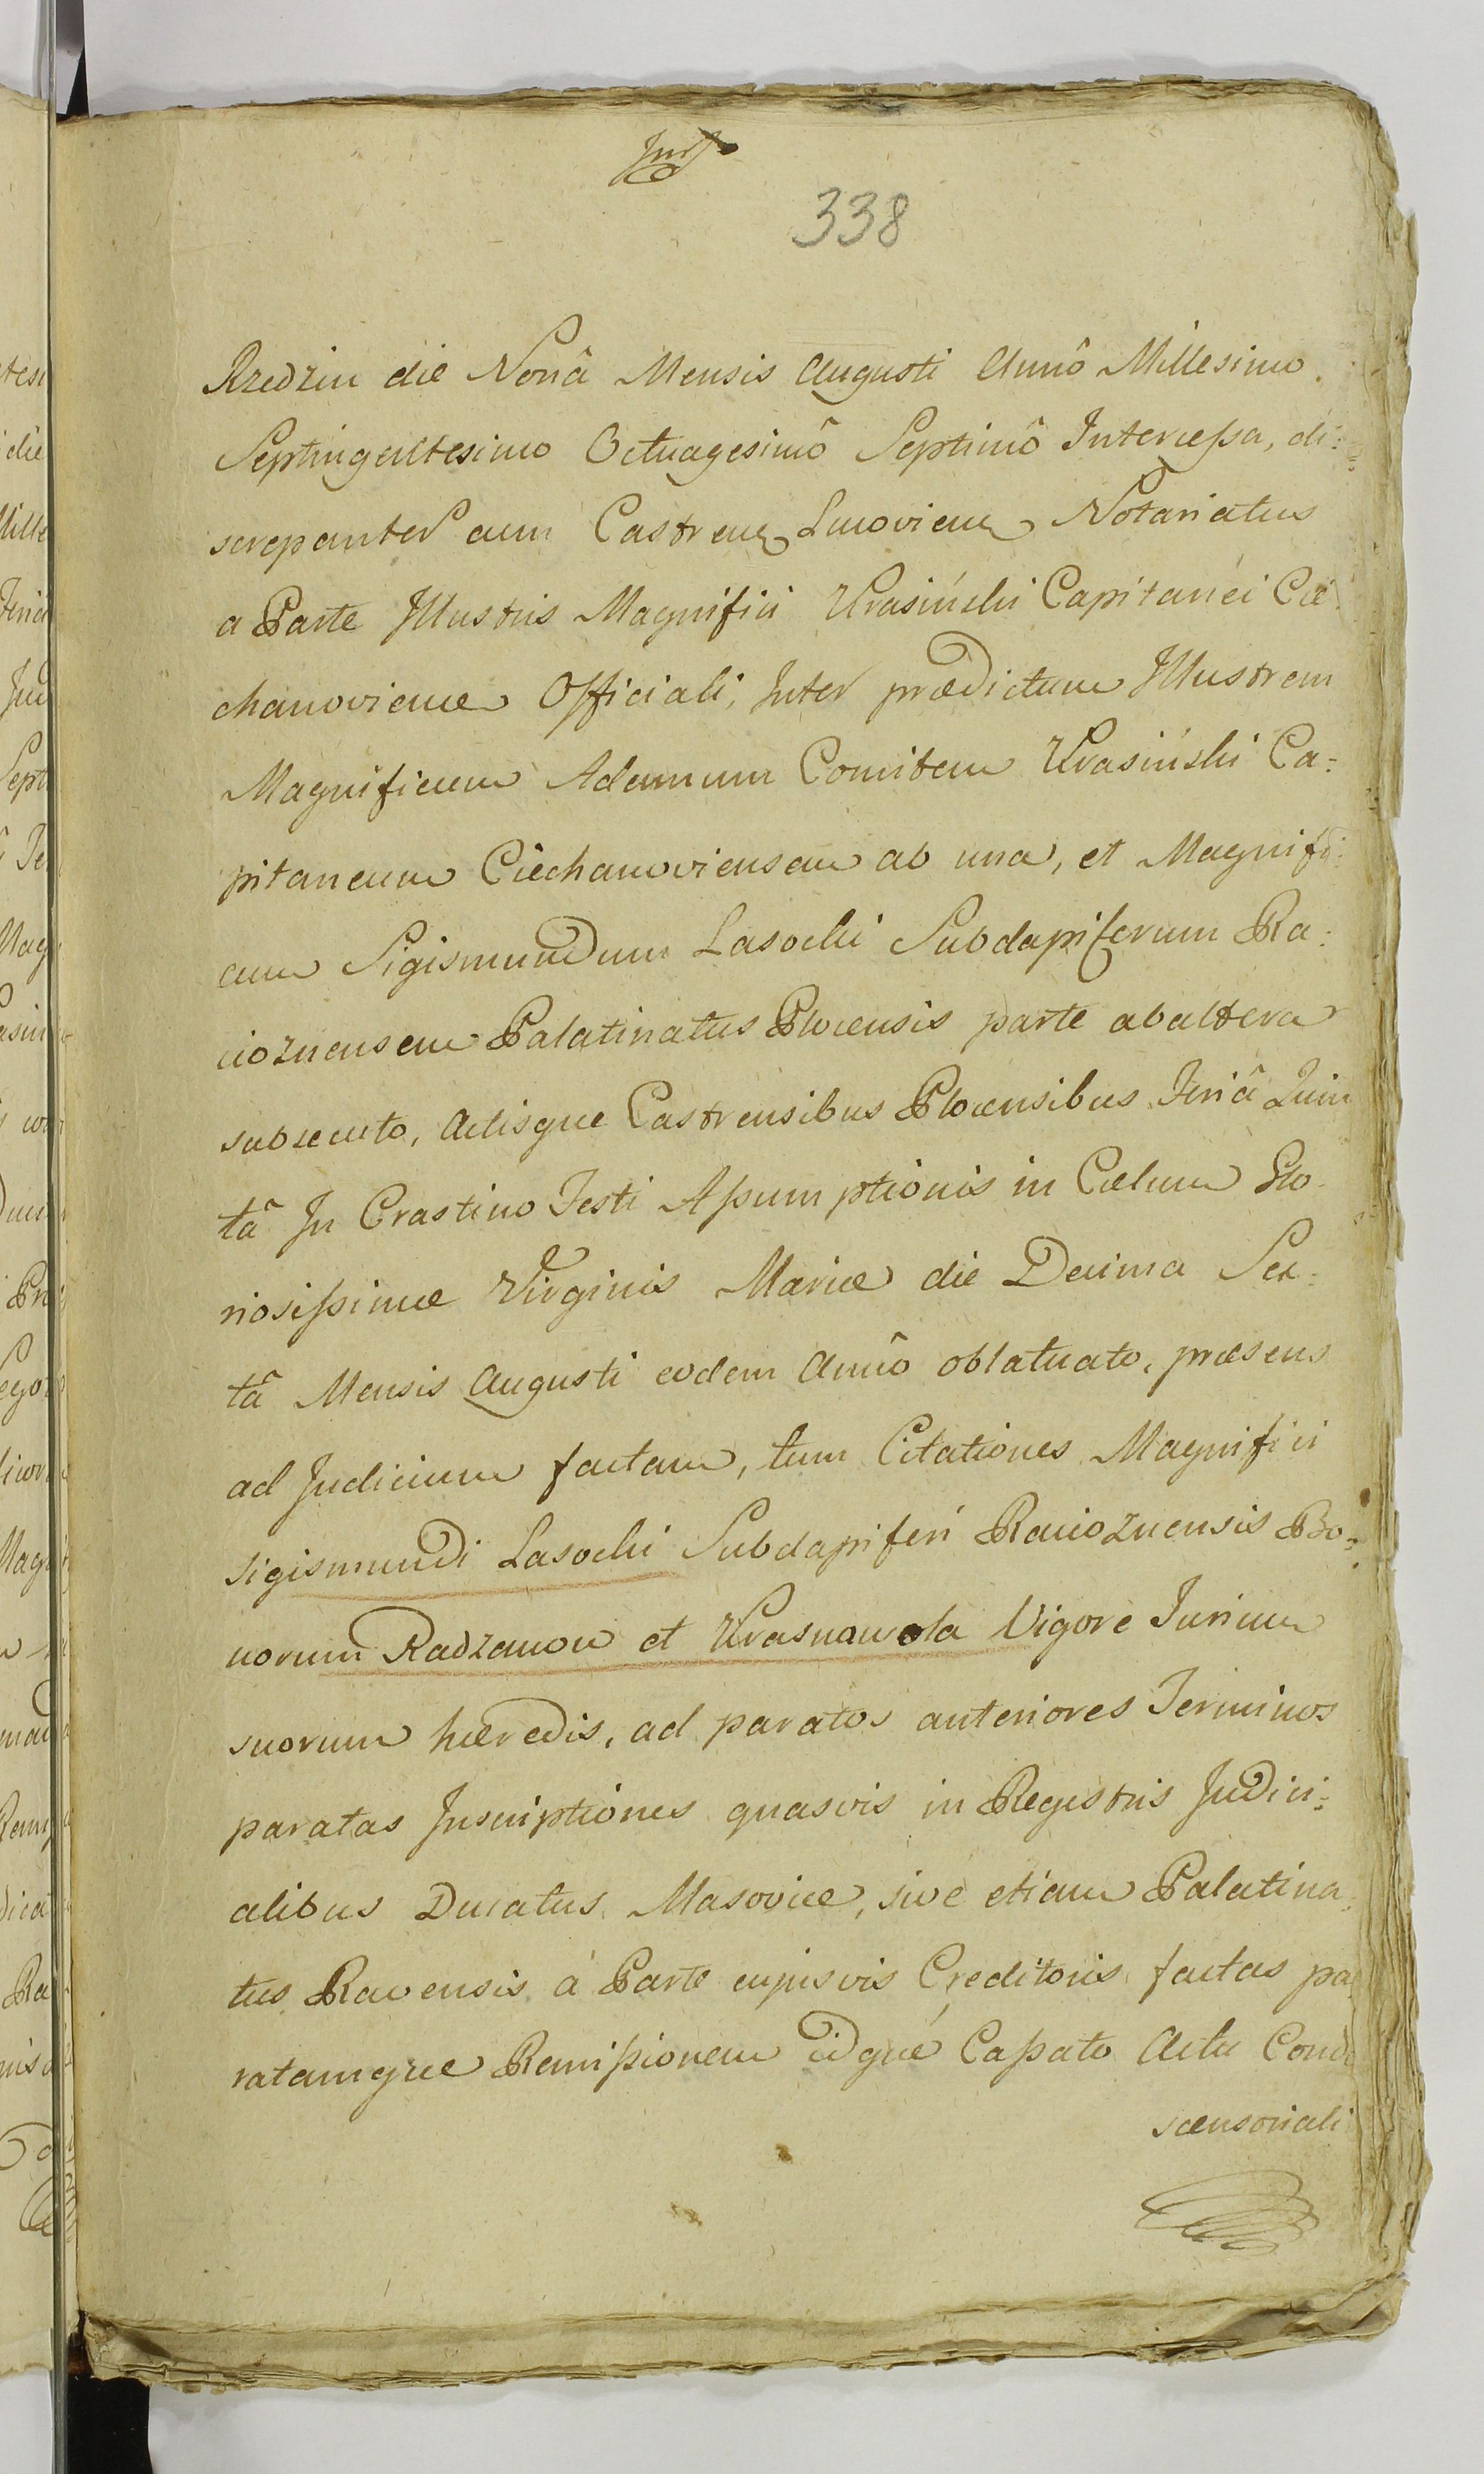 338
Rzedzin die Nonâ Mensis Augusti Annô Millesimo
Septingentesimo Octuagesimô Septimô Intercessa, di=
screpanter cum Castren Livovien Notariatus
a Parte Illustris Magnifici Krasiński Capitanei Cie
chanoviense Officiali, Inter prædictum Illustrem
Magnificum Adamum Comitem Krasiński Ca=
pitaneum Ciechanoviensem ab una, et Magnifi=
cum Sigismundum Lasocki Subdapiferum Ra=
cioznensem Palatinatus Plocensis parte ab altera
subsecuto, Actisque Castrensibus Plocensibus Feriâ Quin
tâ In Crastino Festi Assumptionis in Cœlum Glo-
riosissimæ Virginis Mariæ die Decima Sex=
tâ Mensis Augusti eodem Annô oblatuato, præsens
ad Judicium factam, tum Citationes Magnifici
Sigismundi Lasocki Subdapiferi Racioznensis Bo=
norum Radzanow et Krasnawola Vigore Jurium
suorum hæredis, ad paratos anteriores Terminos
paratas Inscriptiones quasvis in Registris Judici=
alibus Ducatus Masoviæ, sive etiam Palatina=
tus Ravensis à Parte cujusvis Creditoris factas pa
ratamque Remissionem idque Cassato Actu Conde
scensoriali